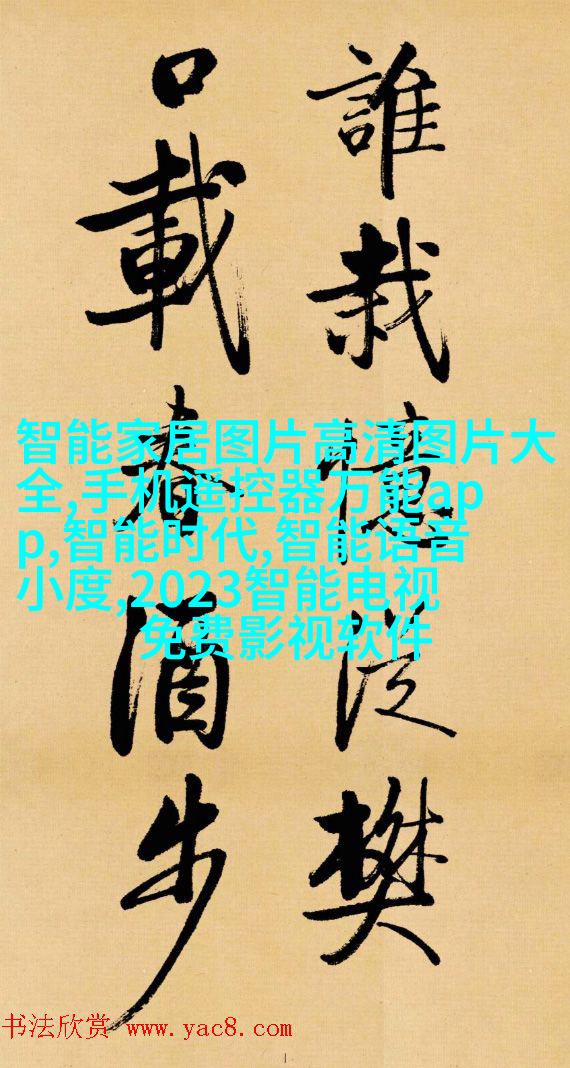 誰栽憶從樊
口載春酒步
智能家居图片高清图片大
全,手机遥控器万能ap
p,智能时代,智能语音
小度,2023智能电视
免费影视软件
书法欣赏 www.yac8.com